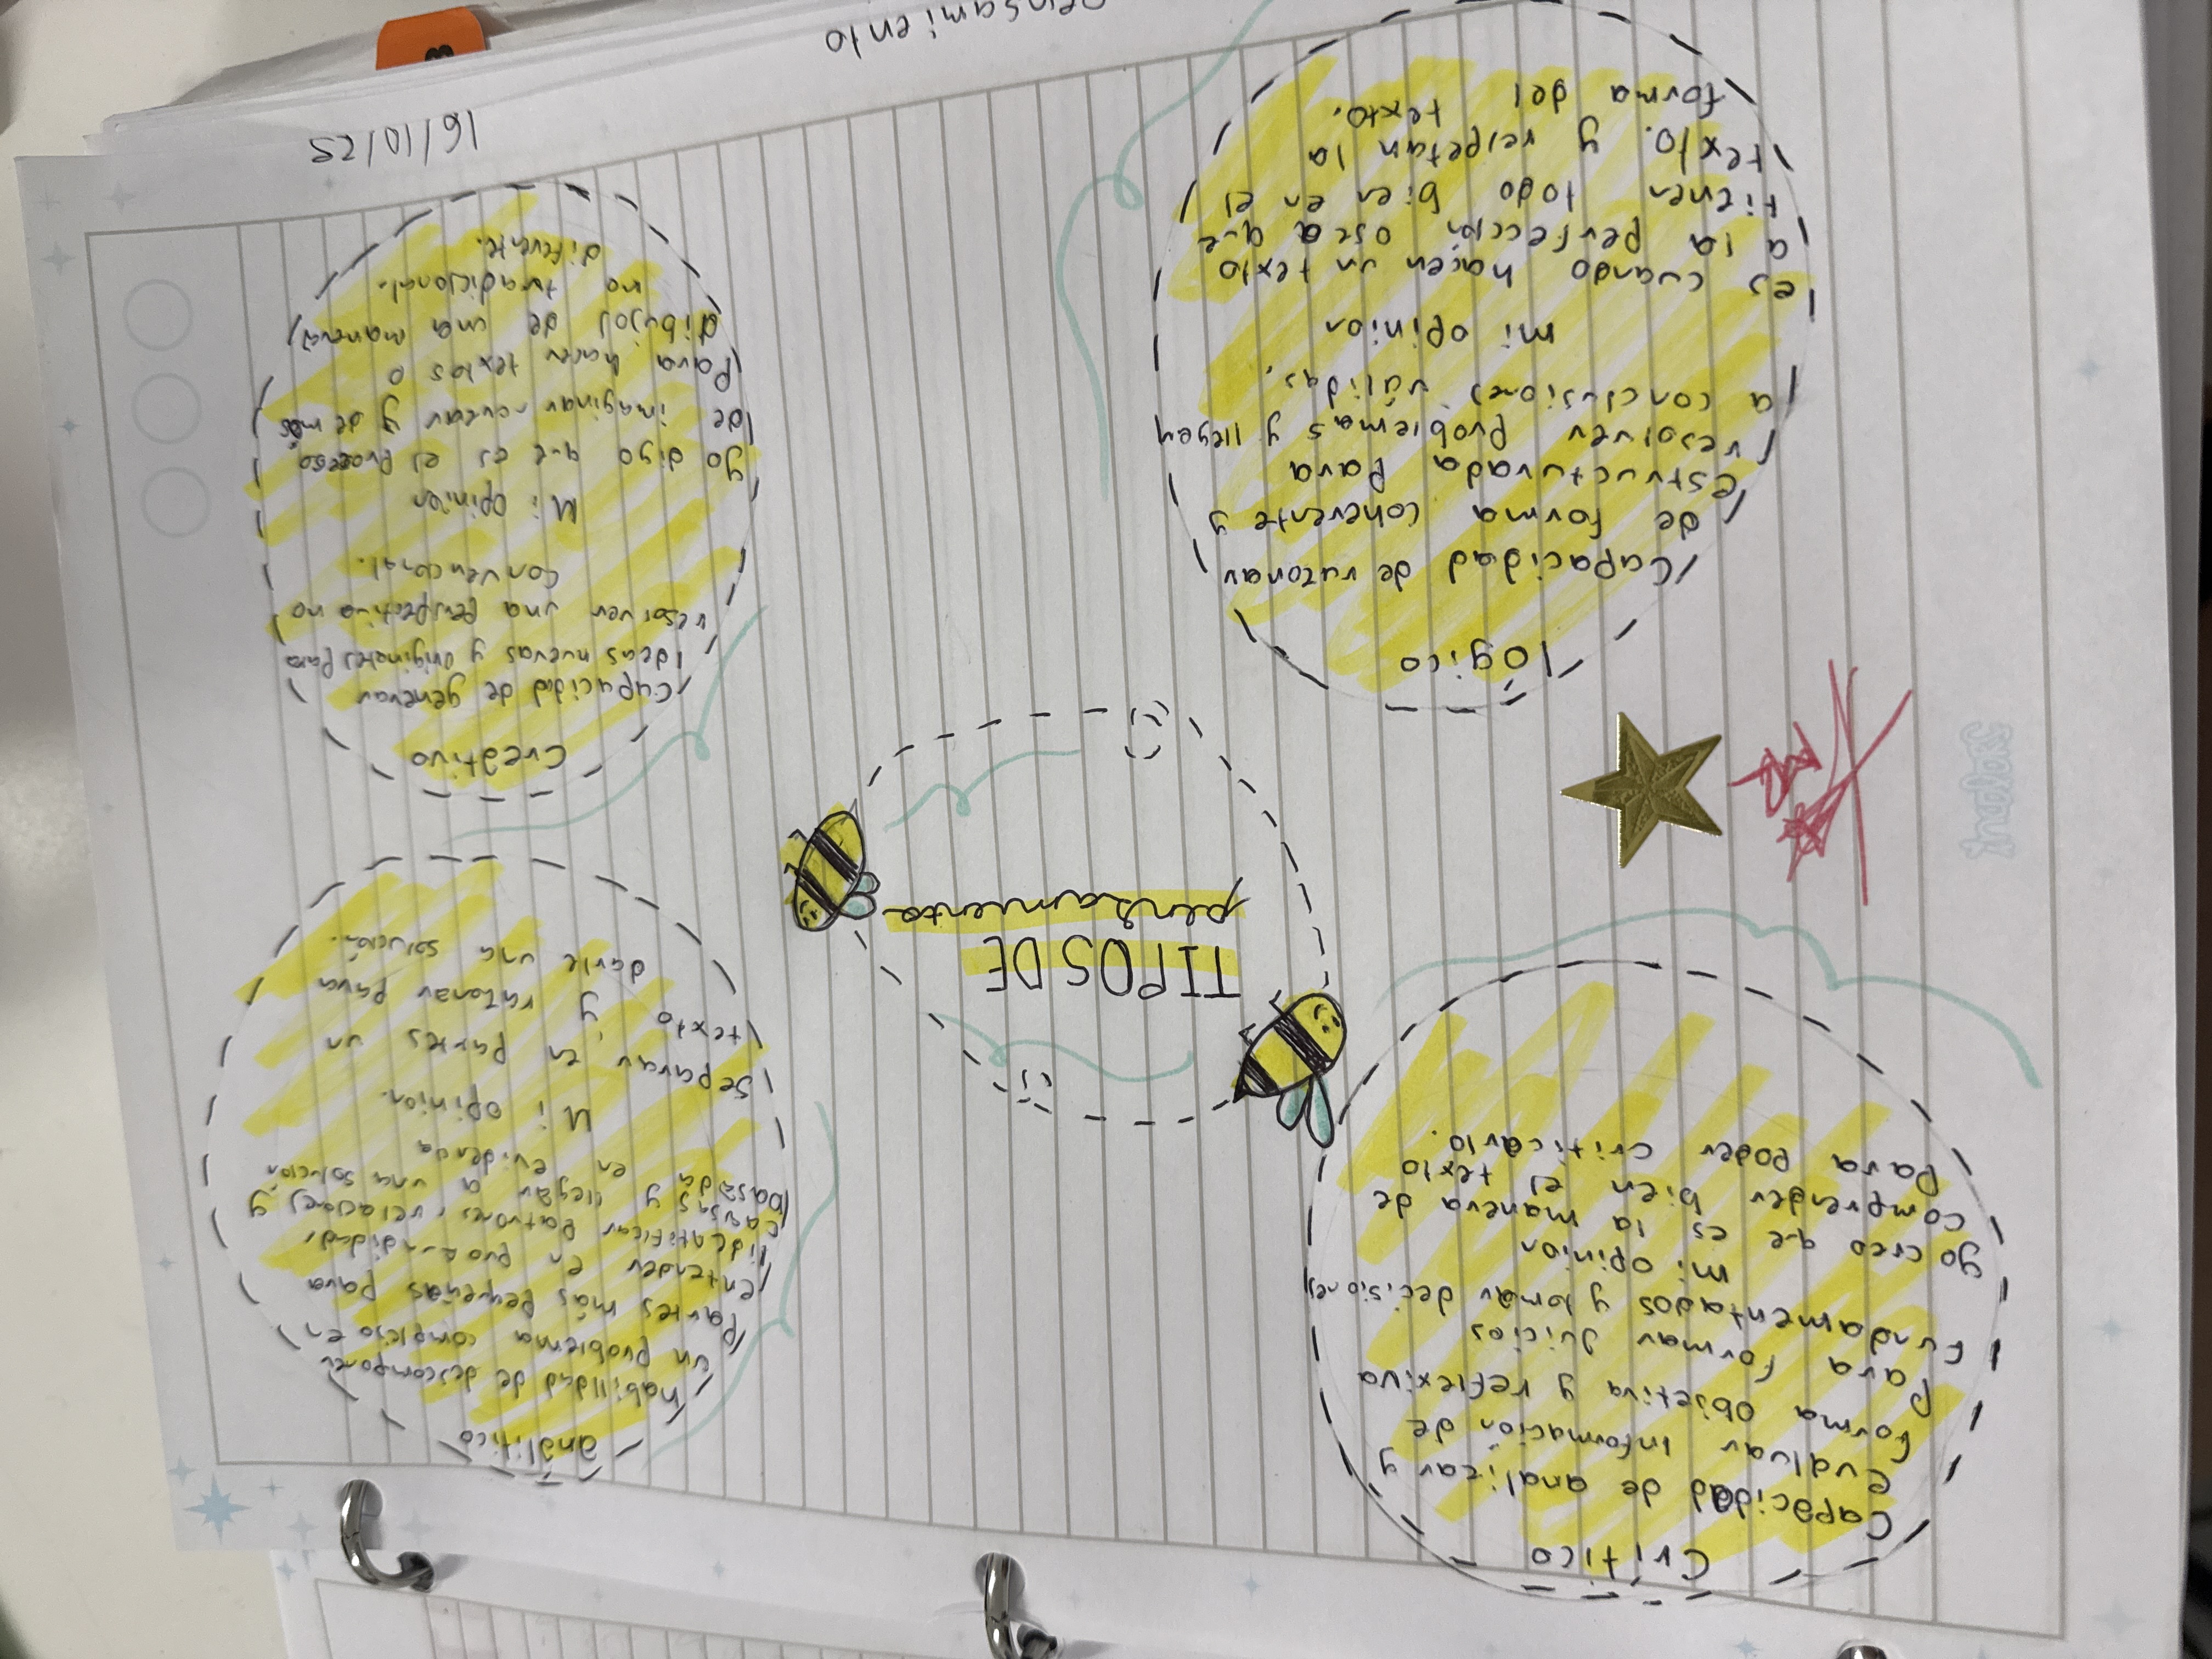 Crítico
Capacidad de analizar y
Evaluar informacion de
forma objetiva y reflexiva
Para formar Juicios
Fundamentados y tomar decisiones
mi opinion
yo creo que es la manera de
comprender bien el texto
para poder criticarlo.
analítico
habilidad de descomponer
un problema complejo en
Partes más pequeñas para
entender en profundidad,
identificar patrones, relaciones y
causas y llegar a una solución
basada en evidencia
Mi opinion.
Separar en partes un
texto y razonar para
darle una solución.
TIPOS DE
pensamiento
lógico
Capacidad de razonar
de forma coherente y
estructurada Para
resolver problemas y llegen
a conclusiones válidas.
mi opinion
es cuando hacen un texto
a la perfeccion osea que
tienen todo bien en el
texto. y respetan la
forma del texto.
Creativo
Capacidad de generar
Ideas nuevas y originales Para
resolver una perspectiva no
convencional.
Mi opinion
yo digo que es el proceso
de imaginar recrear y de más
Para hacer textos o
dibujos de una manera
no tradicional.
diferente.
16/10/25
pensamiento